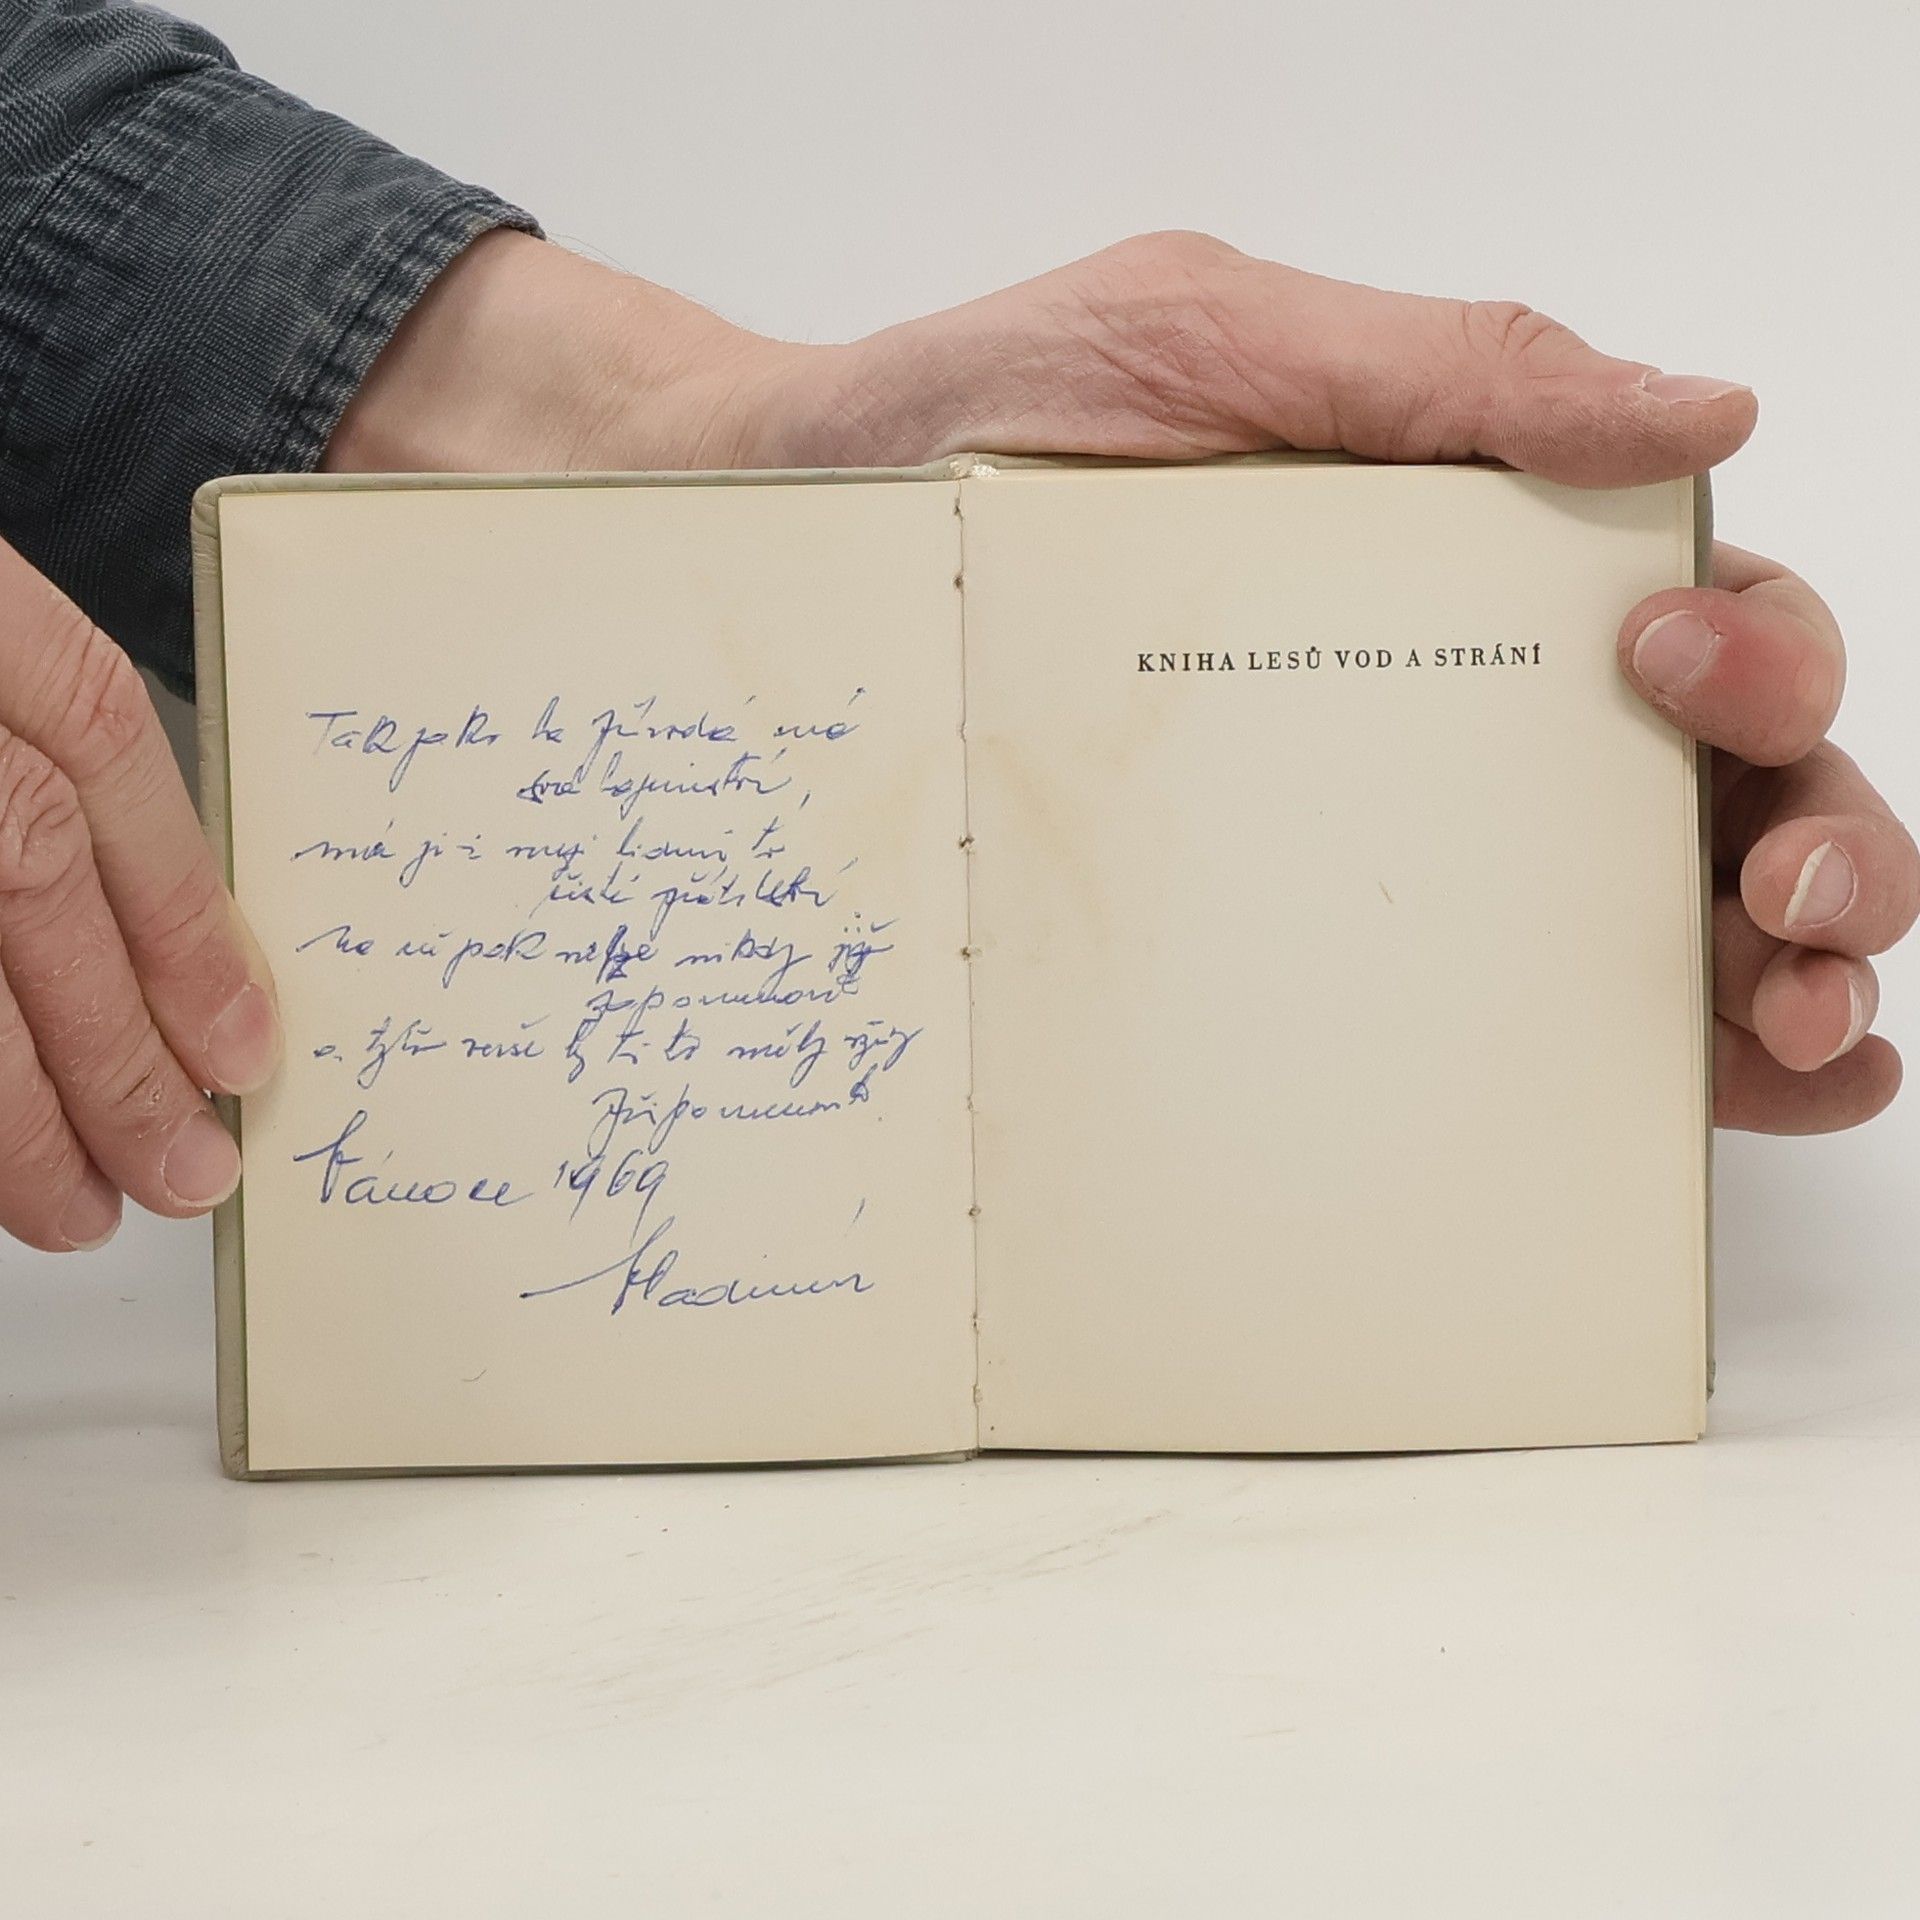 Tak jako ta příroda má
svá tajemství,
má je i mezi lidmi to
čisté přátelství
na ně pak nelze nikdy již
zapomenout
a tyto verše by ti to měly vždy
připomenout.
Vánoce 1969
Vladimír
KNIHA LESŮ VOD A STRÁNÍ